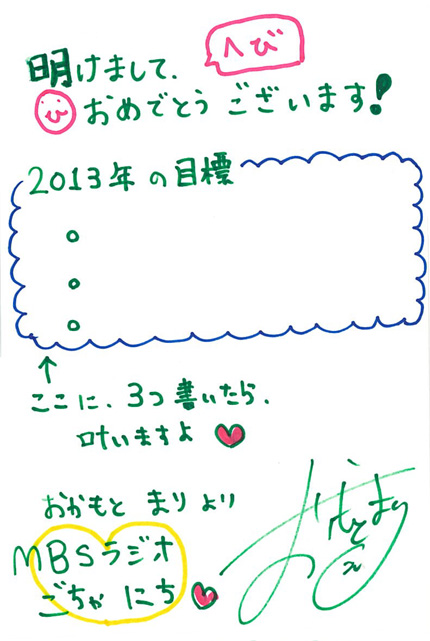 へび
明けまして、
おめでとう ございます!
2013年の目標
ここに、3つ書いたら、
叶いますよ
おかもと まり より
おかもとまり
MBSラジオ
ごちゃ にち